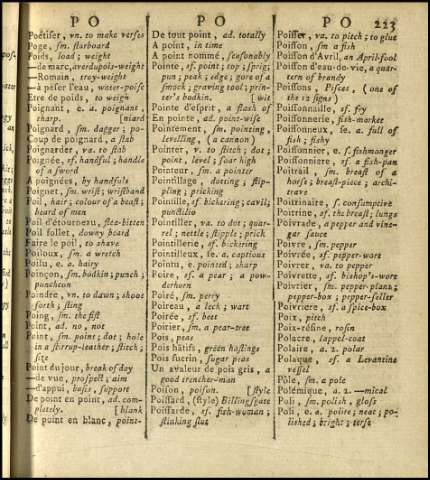 PO
Poëtiser, vn. to make verses
Poge, sm. starboard
Poids, load; weight
—de marc, averdupois-weight
—Romain, troy-weight
—à peser l'eau, water-poise
Etre de poids, to weigh
Poignant, e. a. poignant;
sharp. [niard
Poignard, sm. dagger; po-
Coup de poignard, a stab
Poignarder, va. to stab
Poignée, sf. handful; handle
of a sword
A poignées, by handfuls
Poignet, sm. wrist; wristband
Poil, hair; colour of a beast;
beard of men
Poil d'étourneau, flea-bitten
Poil follet, downy beard
Faire le poil, to shave
Poiloux, sm. a wretch
Poilu, e. a. hairy
Poinçon, sm. bodkin; punch;
puncheon
Poindre, vn. to dawn; shoot
forth; sting
Poing, sm. the fist
Point, ad. no, not
Point, sm. point; dot; hole
in a stirrup-leather; stitch;
site
Point du jour, break of day
—de vue, prospect; aim
—d'appui, basis, support
De point en point, ad. com-
pletely. [blank
De point en blanc, point-
PO
De tout point, ad. totally
A point, in time
A point nommé, seasonably
Pointe, sf. point; top; sprig;
pun; peak; edge; gore of a
smock; graving tool; prin-
ter's bodkin. [wit
Pointe d'esprit, a flash of
En pointe, ad. point-wise
Pointement, sm. pointing,
levelling, (a cannon)
Pointer, v. to stitch; dot;
point, level; soar high
Pointeur, sm. a pointer
Pointillage, dotting; stip-
pling; pricking
Pointille, sf. bickering; cavil;
punctilio
Pointiller, va. to dot; quar-
rel; nettle; stipple; prick
Pointillerie, sf. bickering
Pointilleux, se. a. captious
Pointu, e. pointed; sharp
Poire, sf. a pear; a pow-
derhorn
Poiré, sm. perry
Poireau, a leek; wart
Poirée, sf. beet
Poirier, sm. a pear-tree
Pois, peas
Pois hâtifs, green hastings
Pois sucrin, sugar peas
Un avaleur de pois gris, a
good trencher-man
Poison, poison. [style
Poissard, (style) Billingsgate
Poissarde, sf. fish-woman;
stinking slut
PO 223
Poisser, va. to pitch; to glue
Poisson, sm. a fish
Poisson d'Avril, an April-fool
Poisson d'eau-de-vie, a quar-
tern of brandy
Poissons, Pisces, (one of
the 12 signs)
Poissonaille, sf. fry
Poissonnerie, fish-market
Poissonneux, se. a. full of
fish; fishy
Poissonnier, e. fishmonger
Poissonniere, sf. a fish-pan
Poitrail, sm. breast of a
horse; breast-piece; archi-
trave
Poitrinaire, f. consumptive
Poitrine, sf. the breast; lungs
Poivrade, a pepper and vine-
gar sauce
Poivre, sm. pepper
Poivrée, sf. pepper-wort
Poivrer, va. to pepper
Poivrette, sf. bishop's-wort
Poivrier, sm. pepper-plant;
pepper-box; pepper-seller
Poivriere, sf. a spice-box
Poix, pitch
Poix-résine, rosin
Polacre, lappel-coat
Polaire, a. 2. polar
Polaque, sf. a Levantine
vessel
Pôle, sm. a pole
Polémique, a. 2. —mical
Poli, sm. polish, gloss
Poli, e. a. polite; neat; po-
lished; bright; terse